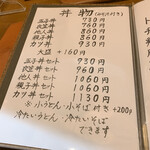 丼物
玉子丼 730円
木の葉丼 760円
他人丼 860円
親子丼 860円
カツ丼 930円
大盛 +160円
玉子丼セット 930円
木の葉丼セット 960円
他人丼セット 1060円
親子丼セット 1060円
カツ丼セット 1130円
※小うどん・小そば付き +200円
冷たいうどん・冷たいそば
できます